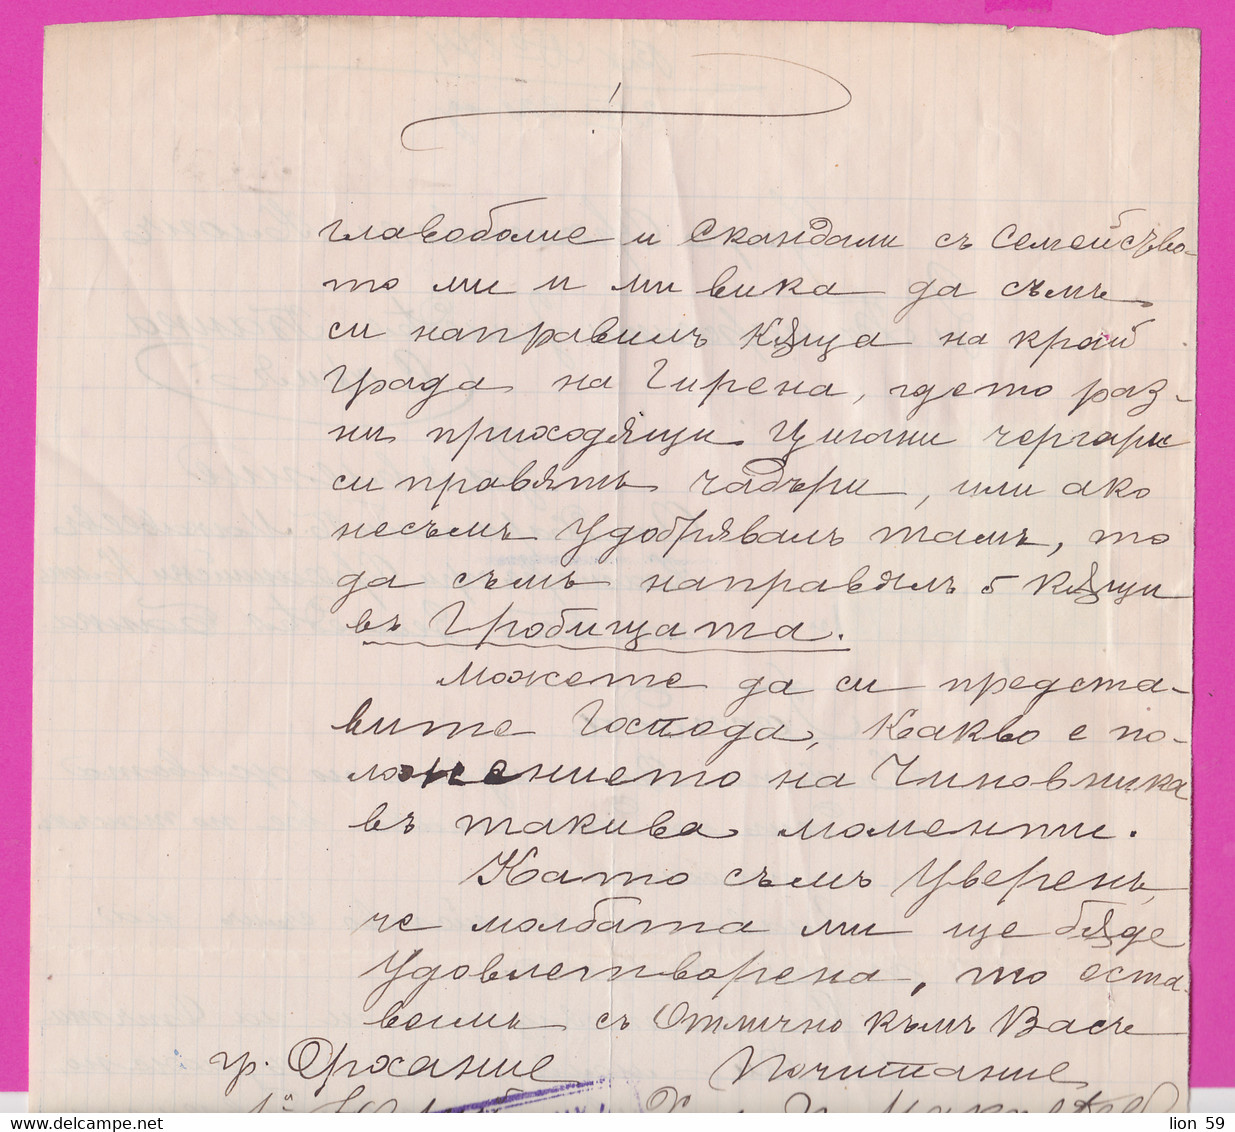 главоболие и скандали съ семейсъво-
то ми и ми вика да съмъ
си направилъ кѫща на край
града на Гирена, гдето раз-
ни приходящи Цигани чергари
си правятъ чадъри, или ако
несъмъ удобрявалъ тамъ, то
да съмъ направялъ 5 кѫщи
въ Гробищата.
можете да си предста-
вите Господа, какво е по-
ложението на Чиновника
въ такива моменти.
Като съмъ уверенъ,
че молбата ми ще бѫде
удовлетворена, то оста-
вамъ съ Отлично къмъ Васъ
гр. Орхание Почитание
lion 59